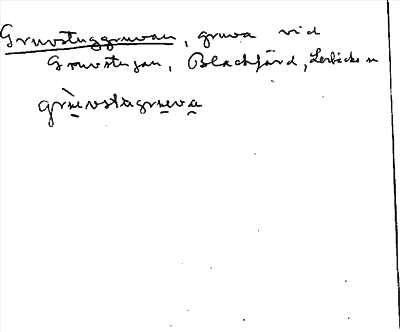 Gruvstuggruvan, gruva vid
Gruvstugan, Blackfärd, Lerbäcks sn
grùvstugruva